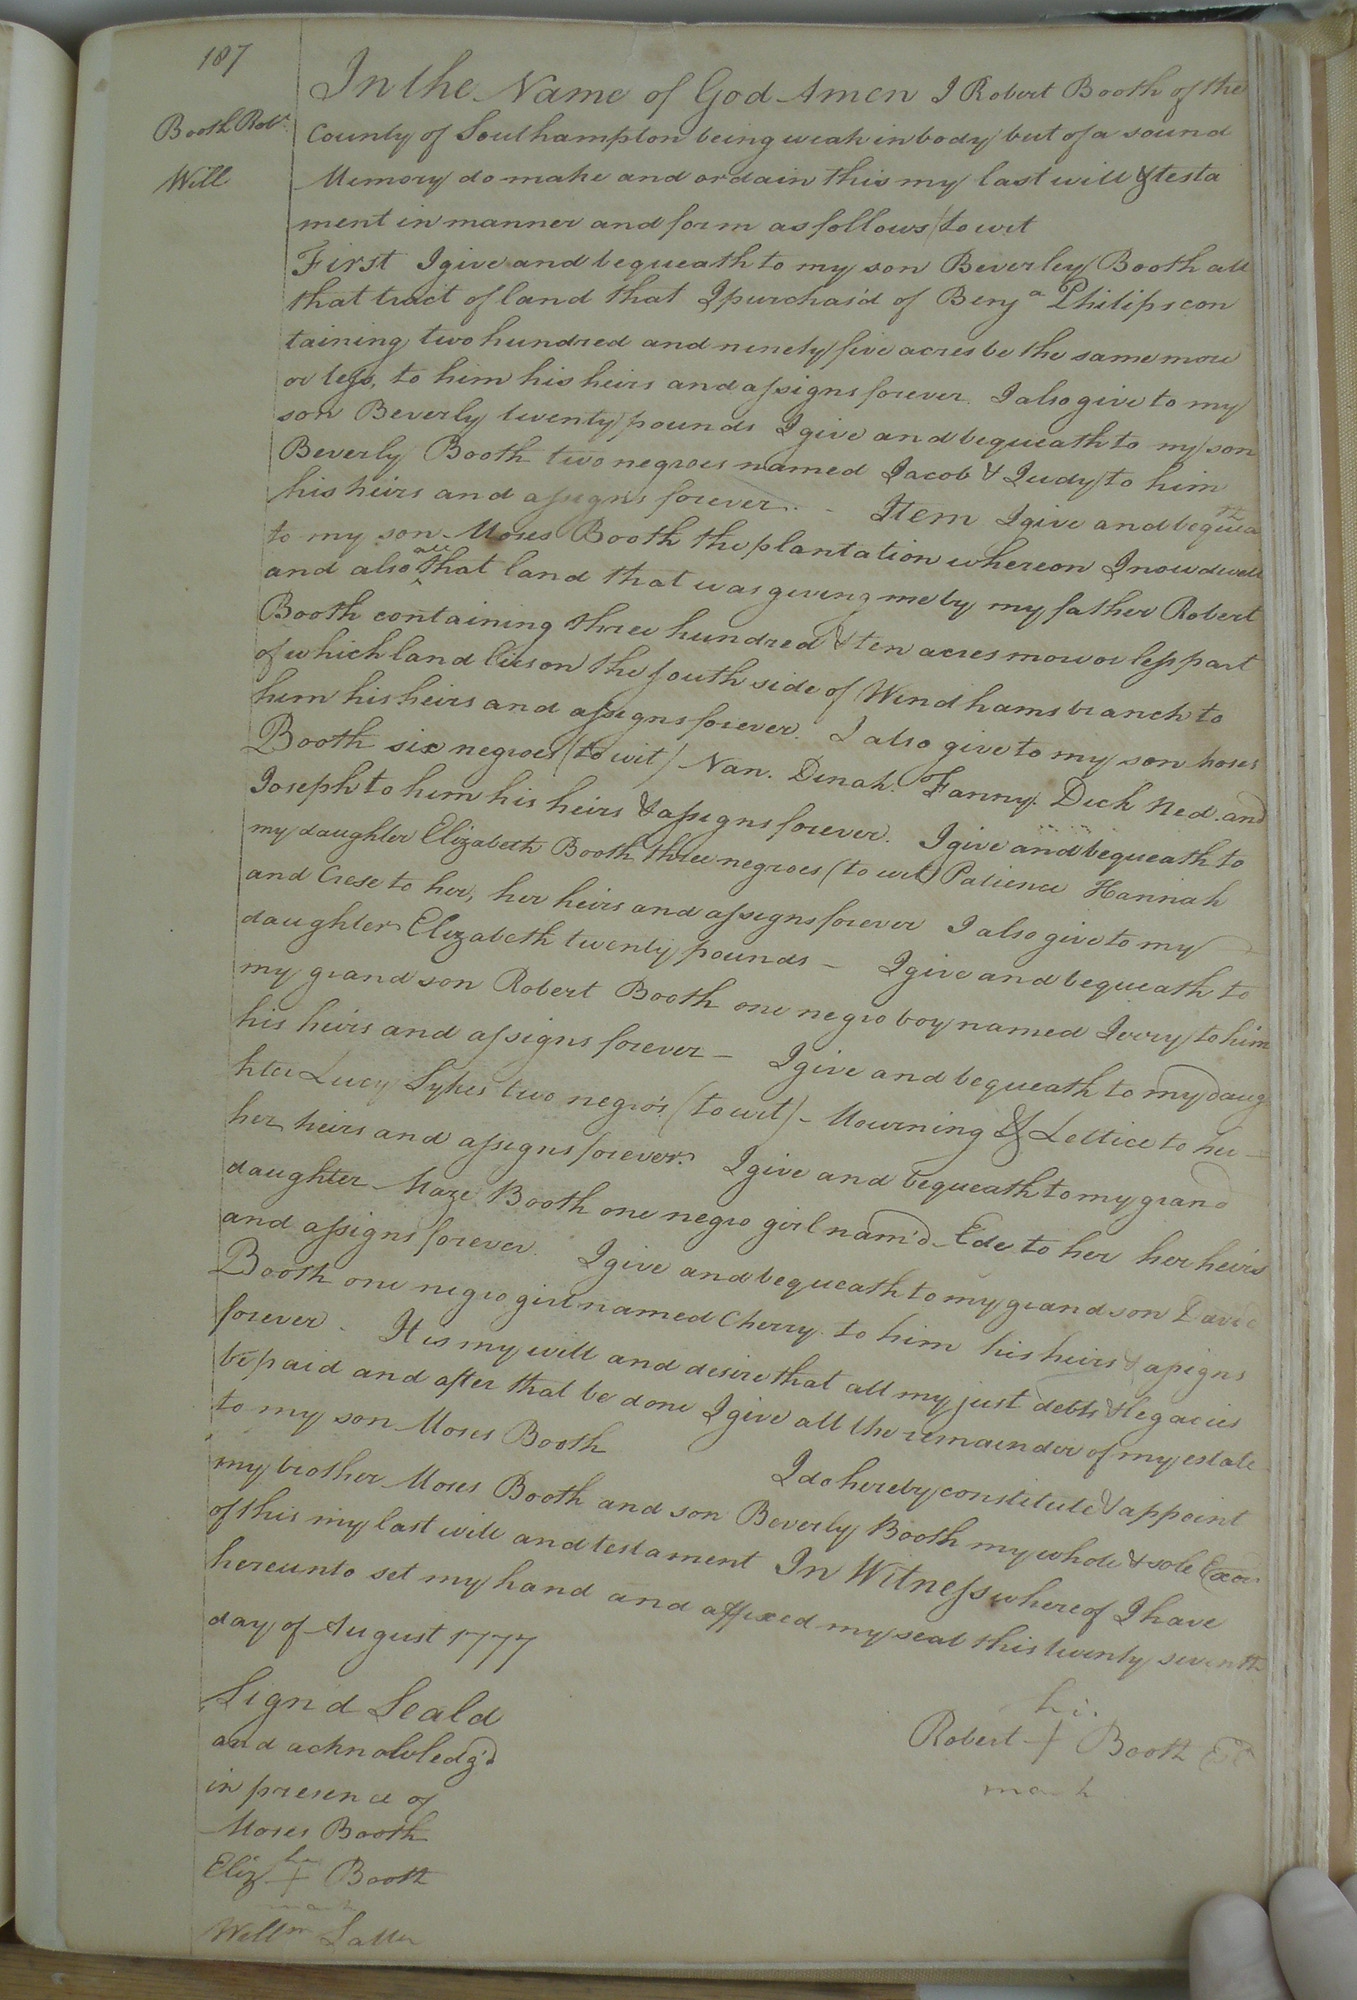 187
Booth Robt
Will
In the Name of God Amen I Robert Booth of the
County of Southampton being weak in body but of a sound
Memory do make and ordain this my last will & testa
ment in manner and form as follows to wit
First I give and bequeath to my son Beverley Booth all
that tract of land that I purchas'd of Benja Philips con
taining two hundred and ninety five acres be the same more
or less, to him his heirs and assigns forever. I also give to my
son Beverly twenty pounds I give and bequeath to my son
Beverly Booth two negroes named Jacob & Judy to him
his heirs and assigns forever. - Item I give and bequea th
to my son Moses Booth the plantation whereon I now dwell
and also all that land that was giving me by my father Robert
Booth containing three hundred & ten acres more or less part
of which land lies on the south side of Windhams branch to
him his heirs and assigns forever. I also give to my son Moses
Booth six negroes (to wit) Nan. Dinah. Fanny. Dick Ned. and
Joseph to him his heirs & assigns forever. I give and bequeath to
my daughter Elizabeth Booth three negroes (to wit) Patience Hannah
and Crese to her, her heirs and assigns forever I also give to my
daughter Elizabeth twenty pounds - I give and bequeath to
my grand son Robert Booth one negro boy named Jerry to him
his heirs and assigns forever - I give and bequeath to my daug
hter Lucy Sykes two negro's (to wit) - Mourning & Lettice to her
her heirs and assigns forever. I give and bequeath to my grand
daughter Maze Booth one negro girl nam'd Ede to her her heirs
and assigns forever. I give and bequeath to my grand son David
Booth one negro girl named Cherry to him his heirs & assigns
forever - It is my will and desire that all my just debts & legacies
be paid and after that be done I give all the remainder of my estate
to my son Moses Booth I do hereby constitute & appoint
my brother Moses Booth and son Beverly Booth my whole & sole Exors
of this my last will and testament In Witness whereof I have
hereunto set my hand and affixed my seal this twenty seventh
day of August 1777
Sign'd Seald
and acknowledg'd
in presence of
Moses Booth
Eliz her + Booth
mark
Willm
his
Robert + Booth
mark